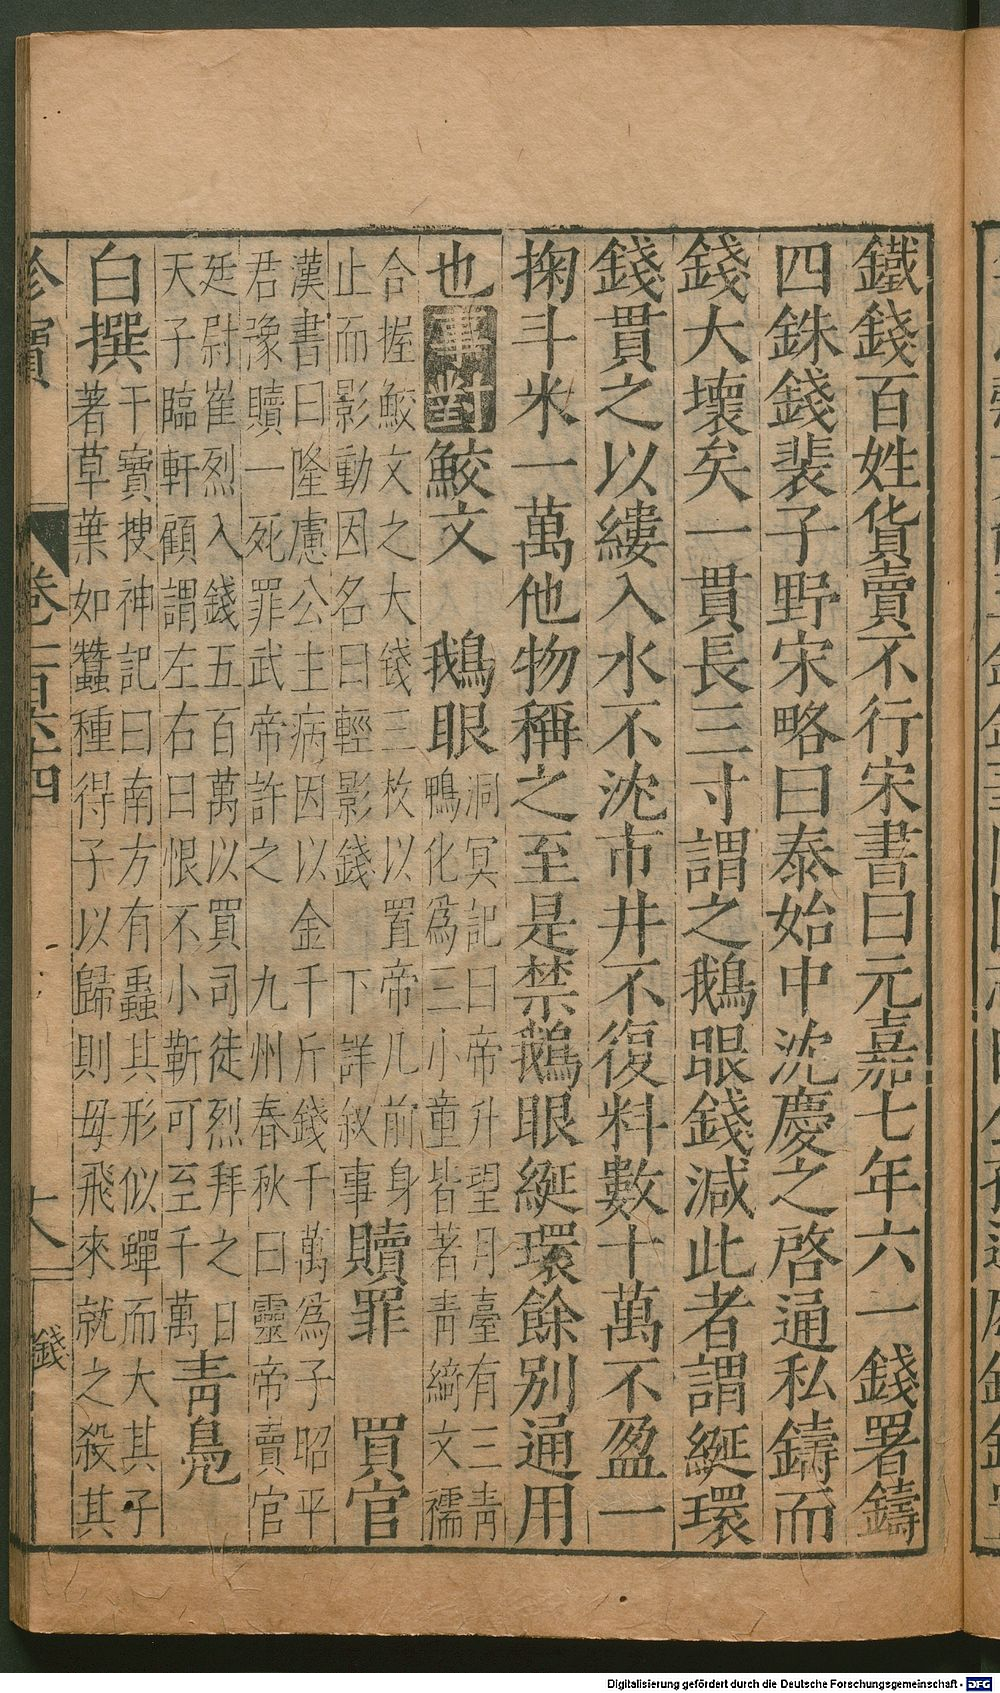 鐵錢百姓貨賣不行宋書曰元嘉七年六一錢署鑄
四銖錢裴子野宋略曰泰始中沈慶之啓通私鑄而
錢大壞矣一貫長三寸謂之鵝眼錢減此者謂綖環
錢貫之以縷入水不沈市井不復料數十萬不盈一
掬斗米一萬他物稱之至是禁鵝眼綖環餘別通用
也事對鮫文　鵝眼洞冥記曰帝升望月臺有三青
鴨化為三小童皆著青綺文襦
合握鮫文之大錢三枚以置帝几前身
止而影動因名曰輕影錢　下詳敘事贖罪　買官
漢書曰隆慮公主病因以金千斤錢千萬為子昭平
君豫贖一死罪武帝許之　九州春秋曰靈帝賣官
廷尉崔烈入錢五百萬以買司徒烈拜之日
天子臨軒顧謂左右曰恨不小靳可至千萬青鳧
白撰干寶搜神記曰南方有蟲其形似蟬而大其子
著草葉如蠶種得子以歸則母飛來就之殺其
珍寶　卷一百六十四　大　錢
Digitalisierung gefördert durch die Deutsche Forschungsgemeinschaft - DFG